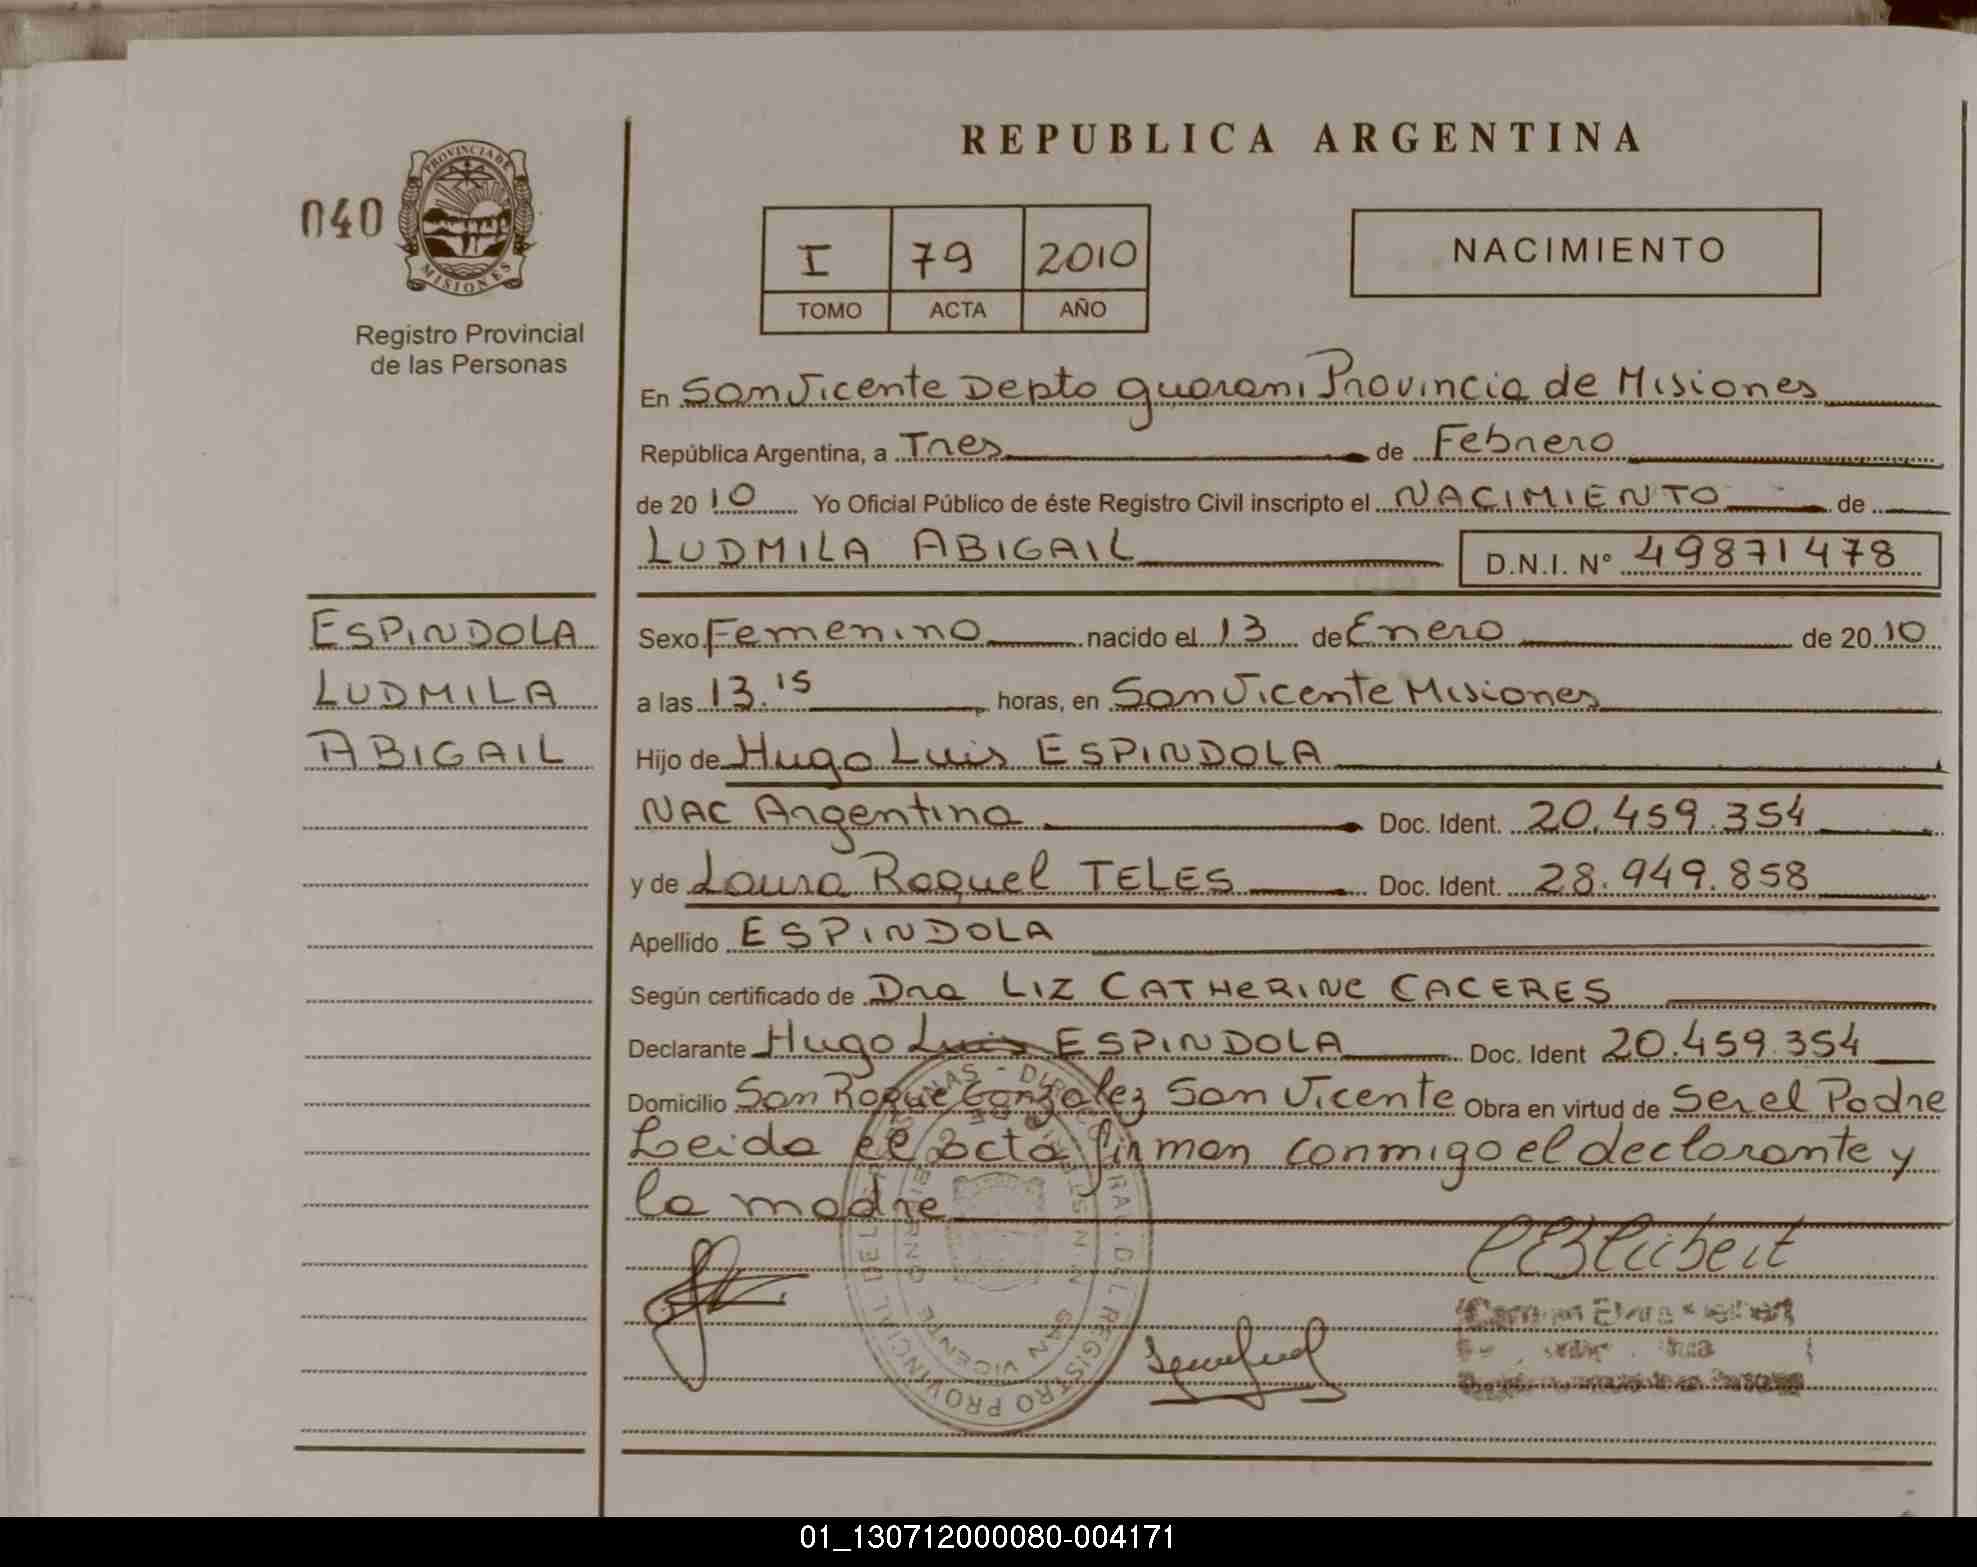 REPUBLICA ARGENTINA
040
PROVINCIA DE
MISIONES
Registro Provincial
de las Personas
I 79 2010
TOMO ACTA AÑO
NACIMIENTO
En San Vicente Depto guarani Provincia de Misiones
República Argentina, a Tres de Febrero
de 2010 Yo Oficial Público de éste Registro Civil inscripto el NACIMIENTO de
LUDMILA ABIGAIL D.N.I. N° 49871478
ESPINDOLA
LUDMILA
ABIGAIL
Sexo Femenino nacido el 13 de Enero de 2010
a las 13.15 horas, en San Vicente Misiones
Hijo de Hugo Luis ESPINDOLA
NAC Argentina Doc. Ident. 20.459.354
y de Laura Raquel TELES Doc. Ident. 28.949.858
Apellido ESPINDOLA
Según certificado de Dra LIZ CATHERINE CACERES
Declarante Hugo Luis ESPINDOLA Doc. Ident 20.459.354
Domicilio San Roque Gonzalez San Vicente Obra en virtud de Ser el Padre
Leida el acta firman conmigo el declarante y
la madre
REGISTRO PROVINCIAL DE LAS
SAN VICENTE
01_130712000080-004171